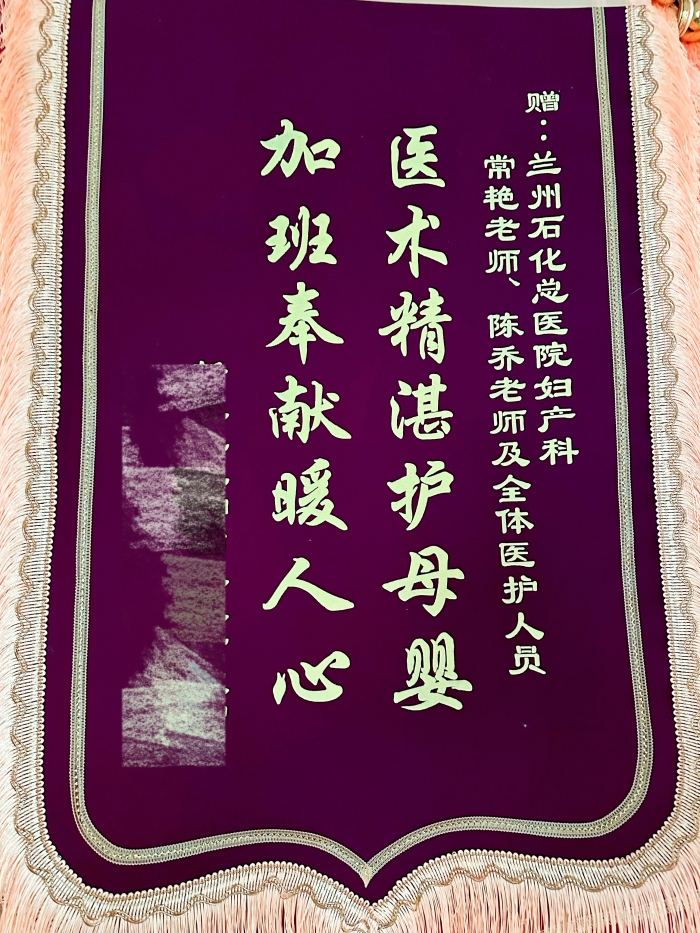 赠：兰州石化总医院妇产科
常艳老师、陈乔老师及全体医护人员
医术精湛护母婴
加班奉献暖人心